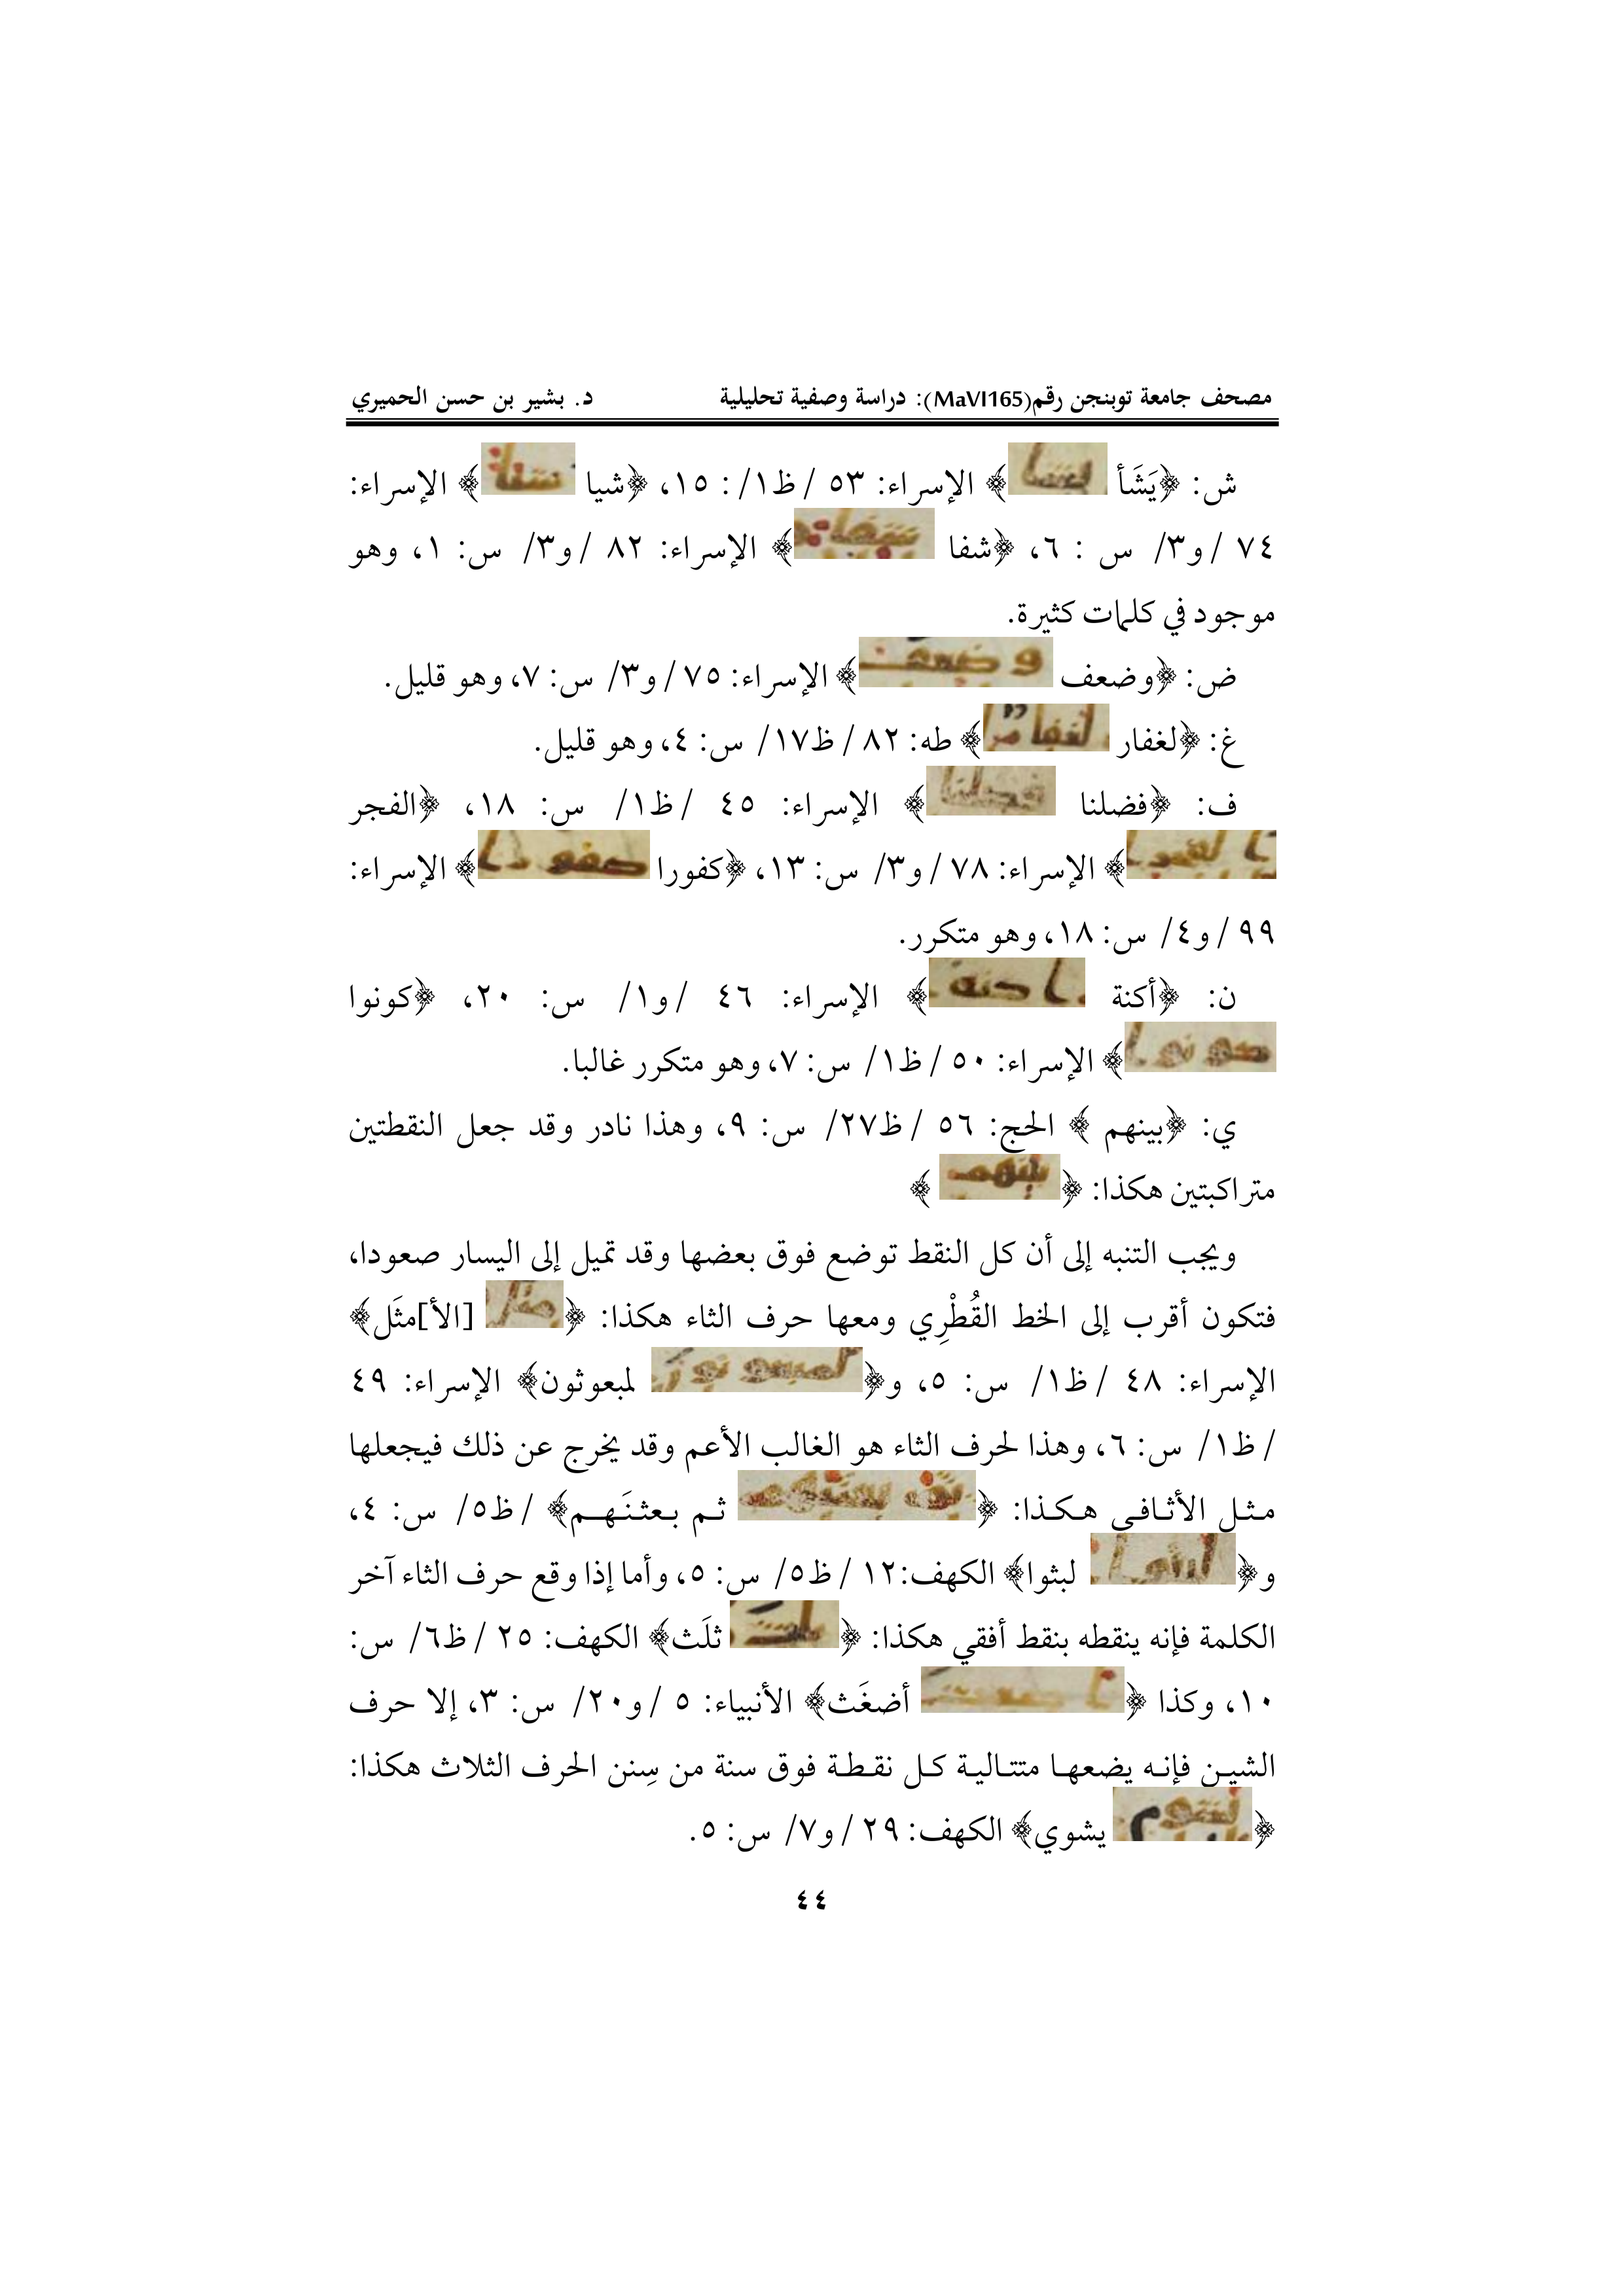 مصحف جامعة توبنجن رقم(MaVI165): دراسة وصفية تحليلية د. بشير بن حسن الحميري
ش: ﴿يَشَأ ﴾ الإسراء: ٥٣ /ظ١/ : ١٥، ﴿شيا ﴾ الإسراء:
٧٤ /و٣/ س : ٦، ﴿شفا ﴾ الإسراء: ٨٢ /و٣/ س: ١، وهو
موجود في كلمات كثيرة.
ض: ﴿وضعف ﴾ الإسراء: ٧٥ /و٣/ س: ٧، وهو قليل.
غ: ﴿لغفار ﴾ طه: ٨٢ /ظ١٧/ س: ٤، وهو قليل.
ف: ﴿فضلنا ﴾ الإسراء: ٤٥ /ظ١/ س: ١٨، ﴿الفجر
﴾ الإسراء: ٧٨ /و٣/ س: ١٣، ﴿كفورا ﴾ الإسراء:
٩٩ /و٤/ س: ١٨، وهو متكرر.
ن: ﴿أكنة ﴾ الإسراء: ٤٦ /و١/ س: ٢٠، ﴿كونوا
﴾ الإسراء: ٥٠ /ظ١/ س: ٧، وهو متكرر غالبا.
ي: ﴿بينهم ﴾ الحج: ٥٦ /ظ٢٧/ س: ٩، وهذا نادر وقد جعل النقطتين
متراكبتين هكذا: ﴿ ﴾
ويجب التنبه إلى أن كل النقط توضع فوق بعضها وقد تميل إلى اليسار صعودا،
فتكون أقرب إلى الخط القُطْرِي ومعها حرف الثاء هكذا: ﴿ [الأ]مثَل﴾
الإسراء: ٤٨ /ظ١/ س: ٥، و﴿ لمبعوثون﴾ الإسراء: ٤٩
/ظ١/ س: ٦، وهذا لحرف الثاء هو الغالب الأعم وقد يخرج عن ذلك فيجعلها
مثل الأثافي هكذا: ﴿ ثم بعثنَهم﴾ /ظ٥/ س: ٤،
و﴿ لبثوا﴾ الكهف:١٢ /ظ٥/ س: ٥، وأما إذا وقع حرف الثاء آخر
الكلمة فإنه ينقطه بنقط أفقي هكذا: ﴿ ثلَث﴾ الكهف: ٢٥ /ظ٦/ س:
١٠، وكذا ﴿ أضغَث﴾ الأنبياء: ٥ /و٢٠/ س: ٣، إلا حرف
الشين فإنه يضعها متتالية كل نقطة فوق سنة من سِنن الحرف الثلاث هكذا:
﴿ يشوي﴾ الكهف: ٢٩ /و٧/ س: ٥.
٤٤